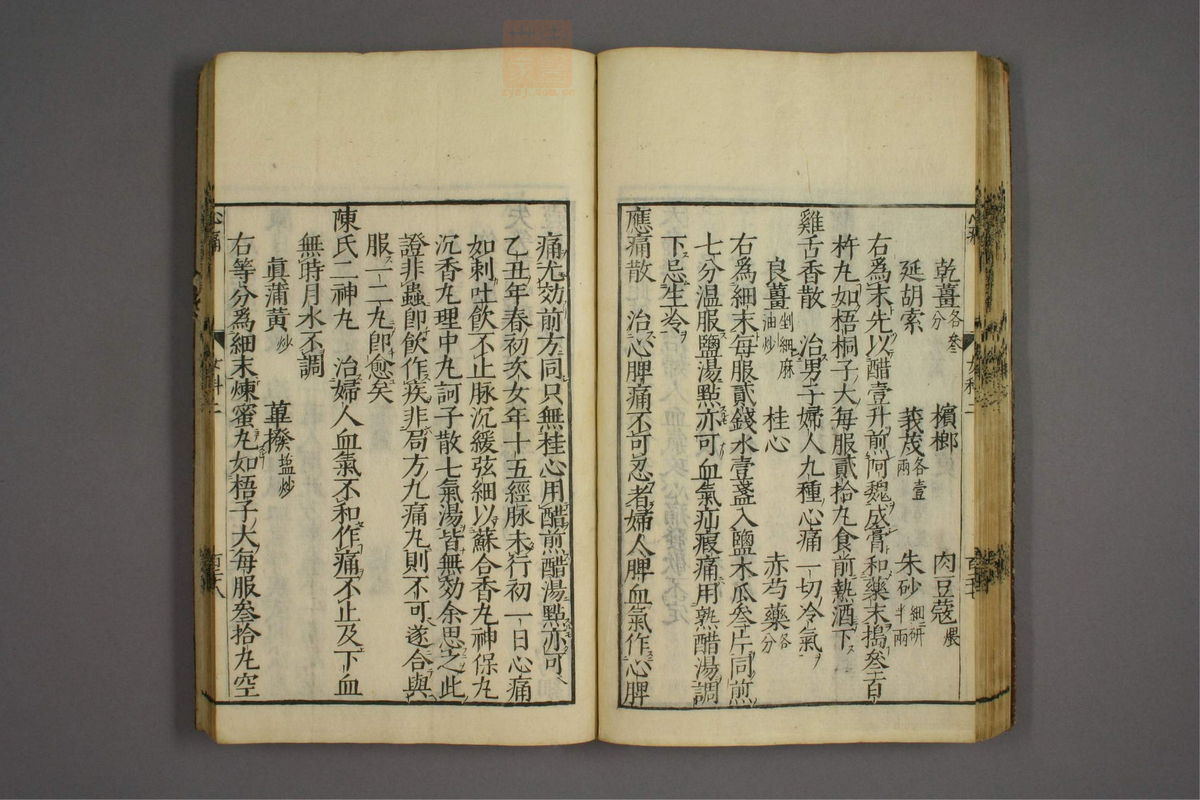 乾薑各叁分　檳榔　肉豆蔻煨
延胡索　莪茂各壹兩　朱砂細研半兩
右爲末先以醋壹升煎阿魏成膏和藥末搗叁百
杵丸如梧桐子大每服貳拾丸食前熱酒下
雞舌香散　治男子婦人九種心痛一切冷氣
良薑剉細麻油炒　桂心　赤芍藥各分
右爲細末每服貳錢水壹盞入鹽木瓜叁片同煎
七分温服鹽湯點亦可血氣疝瘕痛用熟醋湯調
下忌生冷
應痛散　治心脾痛不可忍者婦人脾血氣作心脾
痛尤効前方同只無桂心用醋煎醋湯點亦可
乙丑年春初次女年十五經脉未行初一日心痛
如刺吐飲不止脉沉緩弦細以蘇合香丸神保丸
沉香丸理中丸訶子散七氣湯皆無効余思之此
證非蟲即飲作疾非局方九痛丸則不可遂合與
服一二丸卽愈矣
陳氏二神丸　治婦人血氣不和作痛不止及下血
無時月水不調
眞蒲黃炒　蓽撥盐炒
右等分爲細末煉蜜丸如梧子大每服叁拾丸空
心痛
女科二